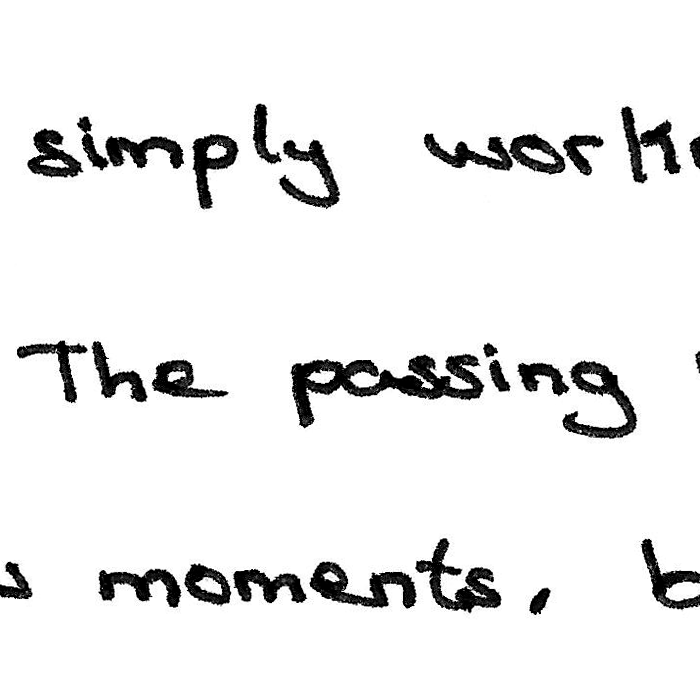 simply work
The passing
moments,